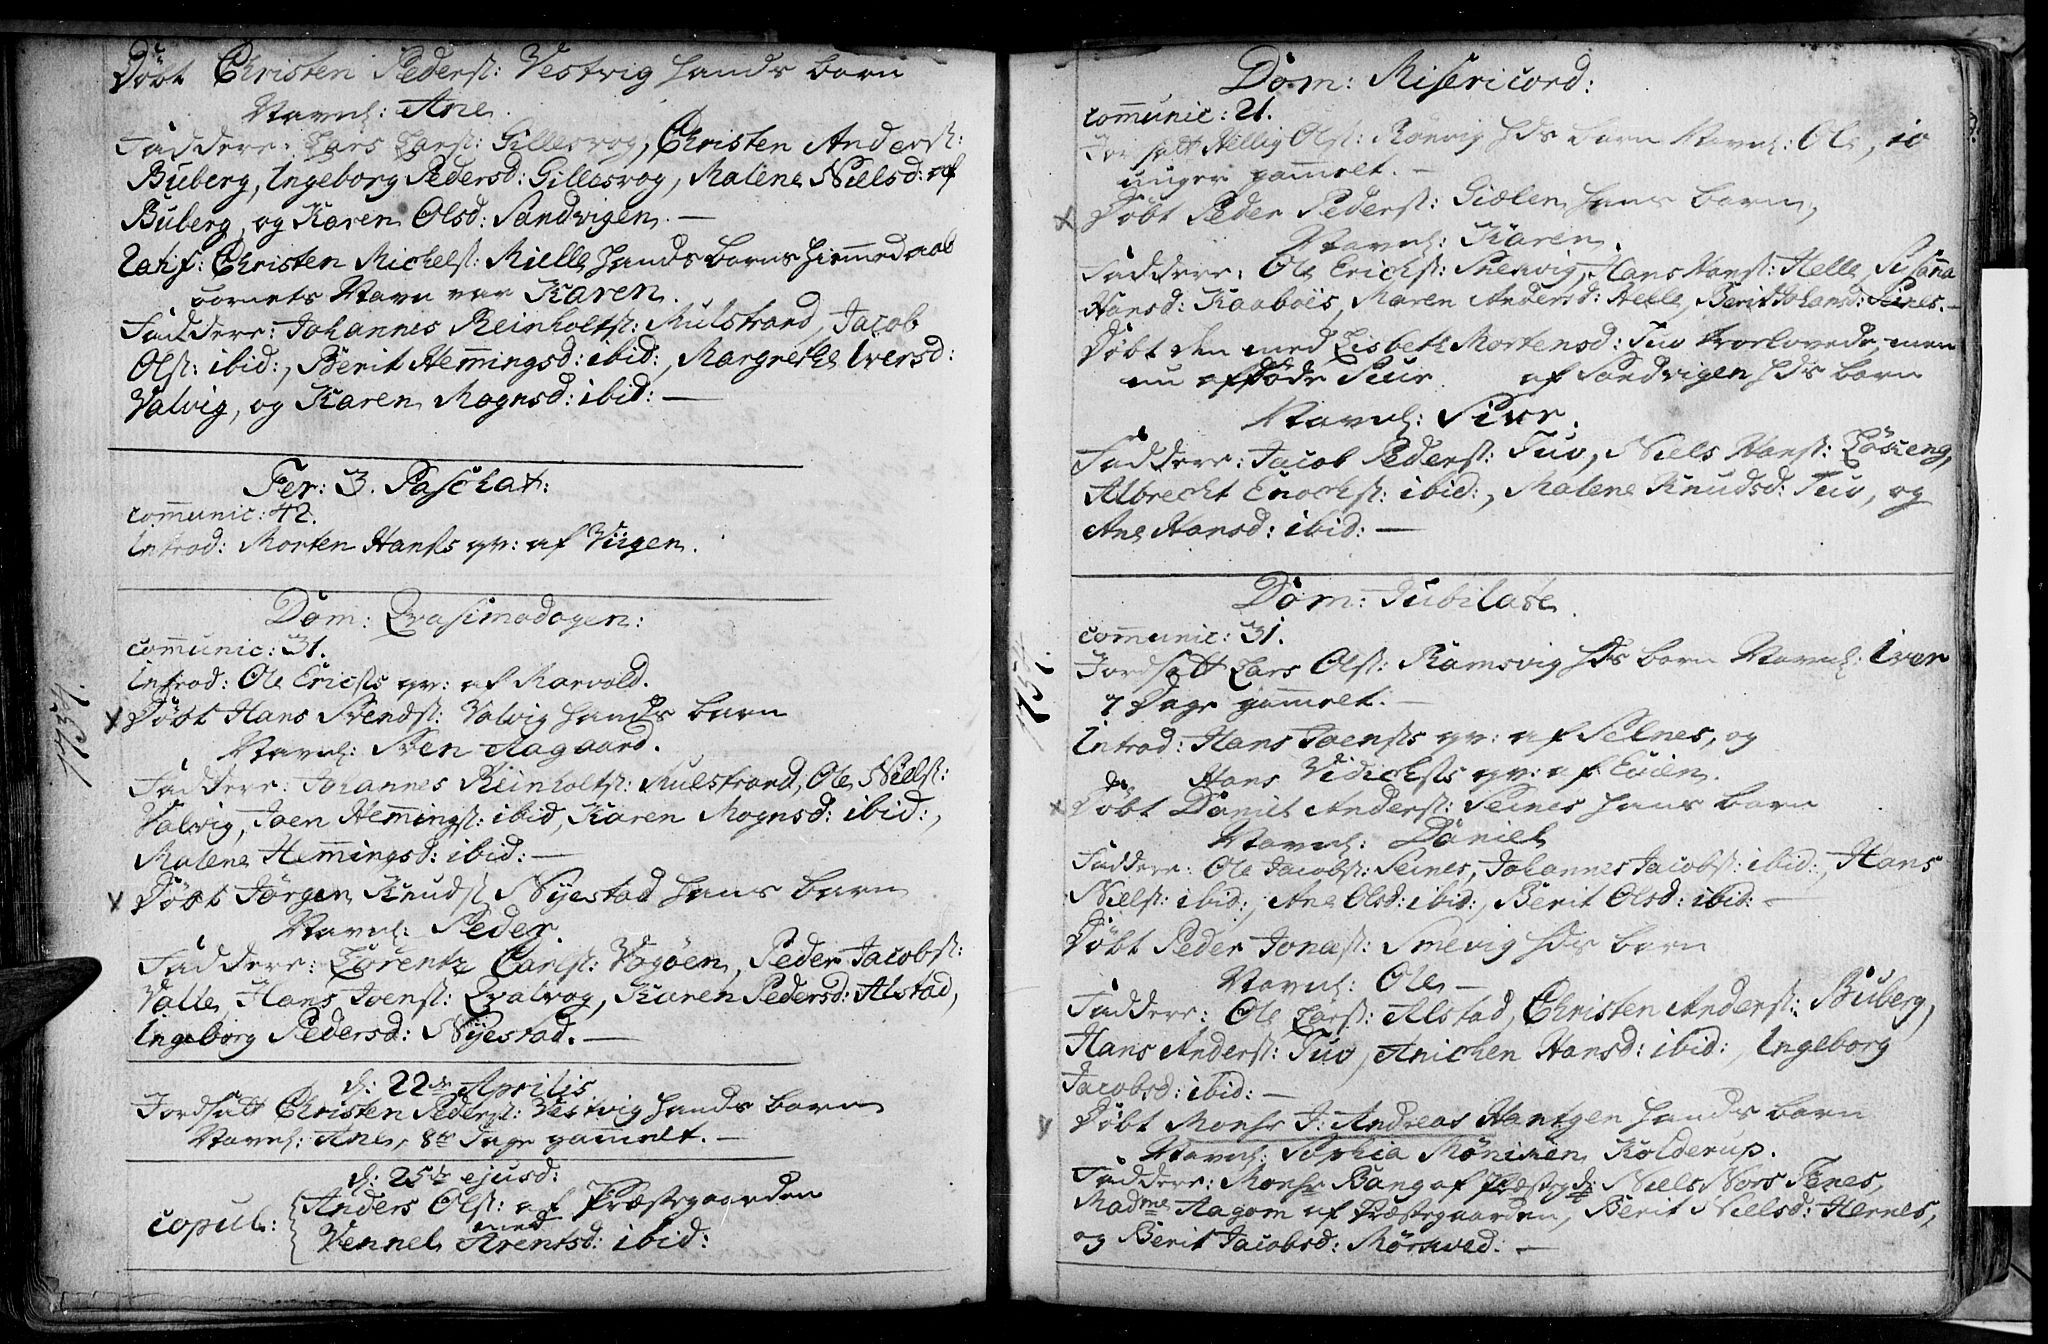 Döbt Christen Peders: Vestvig hands barn
Navnl: Ane.
Faddere: Lars Lars: Gillesvog, Christen Anders:
Buberg, Ingeborg Pedersd: Gillesvog, Malene Nielsd: af
Buberg, og Karen Olsd: Sandvigen. —
Ratif: Christen Michels: Mielle hands barns hiemmedaab
barnets Navn var Karen.
Faddere: Johannes Reinholts: Mulstrand, Jacob
Ols: ibid:, Berit Hemmingsd: ibid:, Margrethe Iversd:
Valvig, og Karen Mognsd: ibid: —
Fer: 3. Paschat:
communic: 42.
Introd: Morten Hansens qv: af Viigen.
Dom: Qvasimodogen:
communic: 31.
Introd: Ole Ericks qv: af Marvold.
Döbt Hans Svends: Valvig hands barn
Navnl: Sven Aagaard.
Faddere: Johannes Reinholts: Mulstrand, Ole Niels:
Valvig, Joen Hemmings: ibid, Karen Mognsd: ibid:,
Malene Hemmingsd: ibid: —
Döbt Jörgen Knuds: Nyestad hans barn
Navnl: Peder.
Faddere: Lorentz Carls: Vogöen, Peder Jacobs:
Valle, Hans Joens: Qvalvog, Karen Pedersd: Alstad,
Ingeborg Pedersd: Nyestad. —
1734.
d: 22de Aprilis
Jordsatt Christen Peders: Vestvig hands barn
Navnl: Ane, 8te Dage gammelt. —
d: 25te ejusd:
copul: Anders Ols: af Præstegaarden
med
Vennel Arentsd: ibid:
Dom: Misericord:
communic: 21.
Jordsatt Hellig Ols: Rönvig hds barn Navnl: Ole, 10
uuger gammelt. —
Döbt Peder Peders: Giælen hans barn,
Navnl: Karen.
Faddere: Ole Ericks: Snevig, Hans Hans: Helle, Susanna
Hansd: Kaaböis, Maren Andersd: Helle, Berit Johansd: Seines. —
Döbt den med Lisbeth Mortensd: Tuv trolovede, men
nu afdöde Siur af Sandvigen hds barn
Navnl: Siur.
Faddere: Jacob Peders: Tuv, Niels Hans: Lökeng,
Albrecht Enochs: ibid:, Malene Knudsd: Tuv, og
Ane Hansd: ibid: —
Dom: Jubilate.
communic: 31.
Jordsatt Lars Ols: Ramsvig hds barn Navnl: Iver
7 Dage gammelt. —
Introd: Hans Joensens qv: af Selnes, og
Hans Didricks qv: af Euien.
Döbt Daniel Anders: Seines hans barn
Navnl: Daniel
Faddere: Ole Jacobs: Seines, Johannes Jacobs: ibid:, Hans
Niels: ibid:, Ane Olsd: ibid:, Berit Olsd: ibid: —
Döbt Peder Jonæs: Snevig hds barn
Navnl: Ole —
Faddere: Ole Lars: Alstad, Christen Anders: Buberg,
Hans Anders: Tuv, Anichen Hansd: ibid:, Ingeborg
Jacobsd: ibid: —
Döbt Monsr J: Andreas Hantgen hands barn
Navnl: Sophia Mönichen Kolderup.
Faddere: Monsr Bang af Præstegd: Niels Nors Fenes,
Madme Aagom af Præstegaarden, Berit Nielsd: Hernes,
og Berit Jacobsd: Mörkved. —
1734.